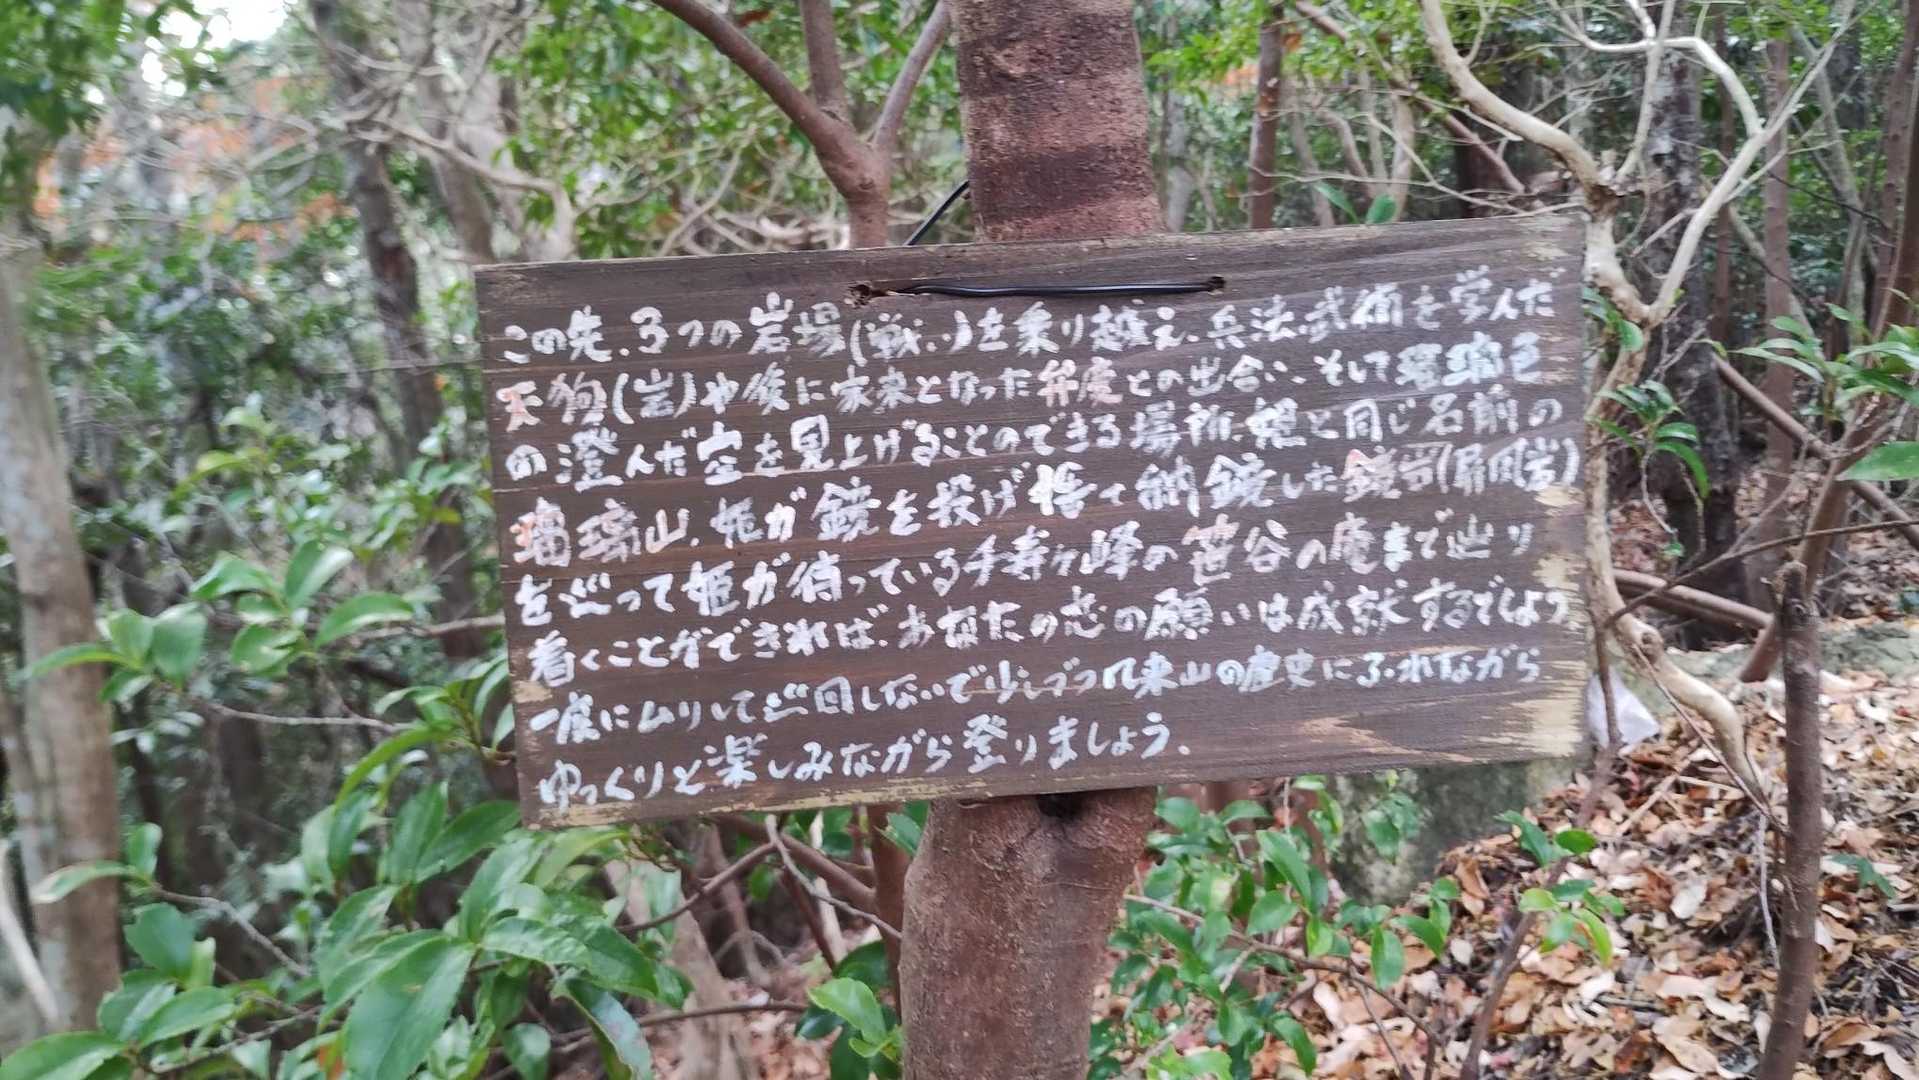 この先、3つの岩場(戦い)を乗り越え、兵法、武術を学んだ
天狗(岩)や後に家来となった弁慶との出合い、そして瑠璃色
の澄んだ空を見上げることのできる場所、姫と同じ名前の
瑠璃山、姫が鏡を投げ捨て納鏡した鏡岩(屏風岩)
を巡って姫が待っている千寿ヶ峰の笹谷の庵まで辿り
着くことができれば、あなたの恋の願いは成就するでしょう
一度にムリして巡回しないで少しづつ 来山の歴史にふれながら
ゆっくりと楽しみながら登りましょう.